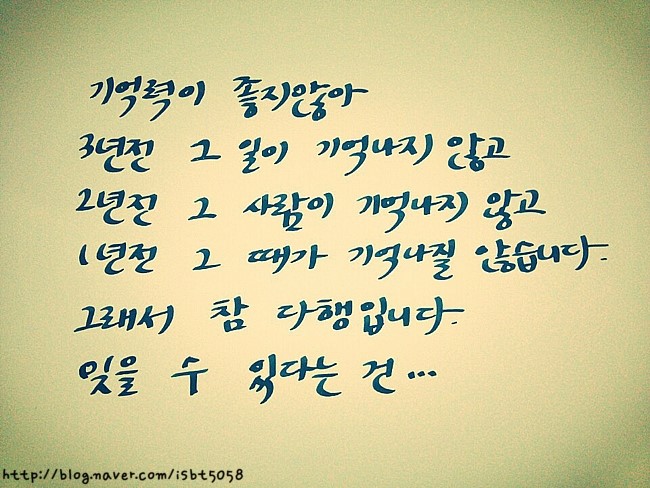 기억력이 좋지않아
3년전 그 일이 기억나지 않고
2년전 그 사람이 기억나지 않고
1년전 그 때가 기억나질 않습니다.
그래서 참 다행입니다.
잊을 수 있다는 건...
http://blog.naver.com/isbt5058